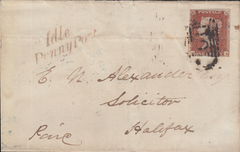 Idle
Penny Post
E. N. Alexander Esq
Solicitor
Halifax
Paid